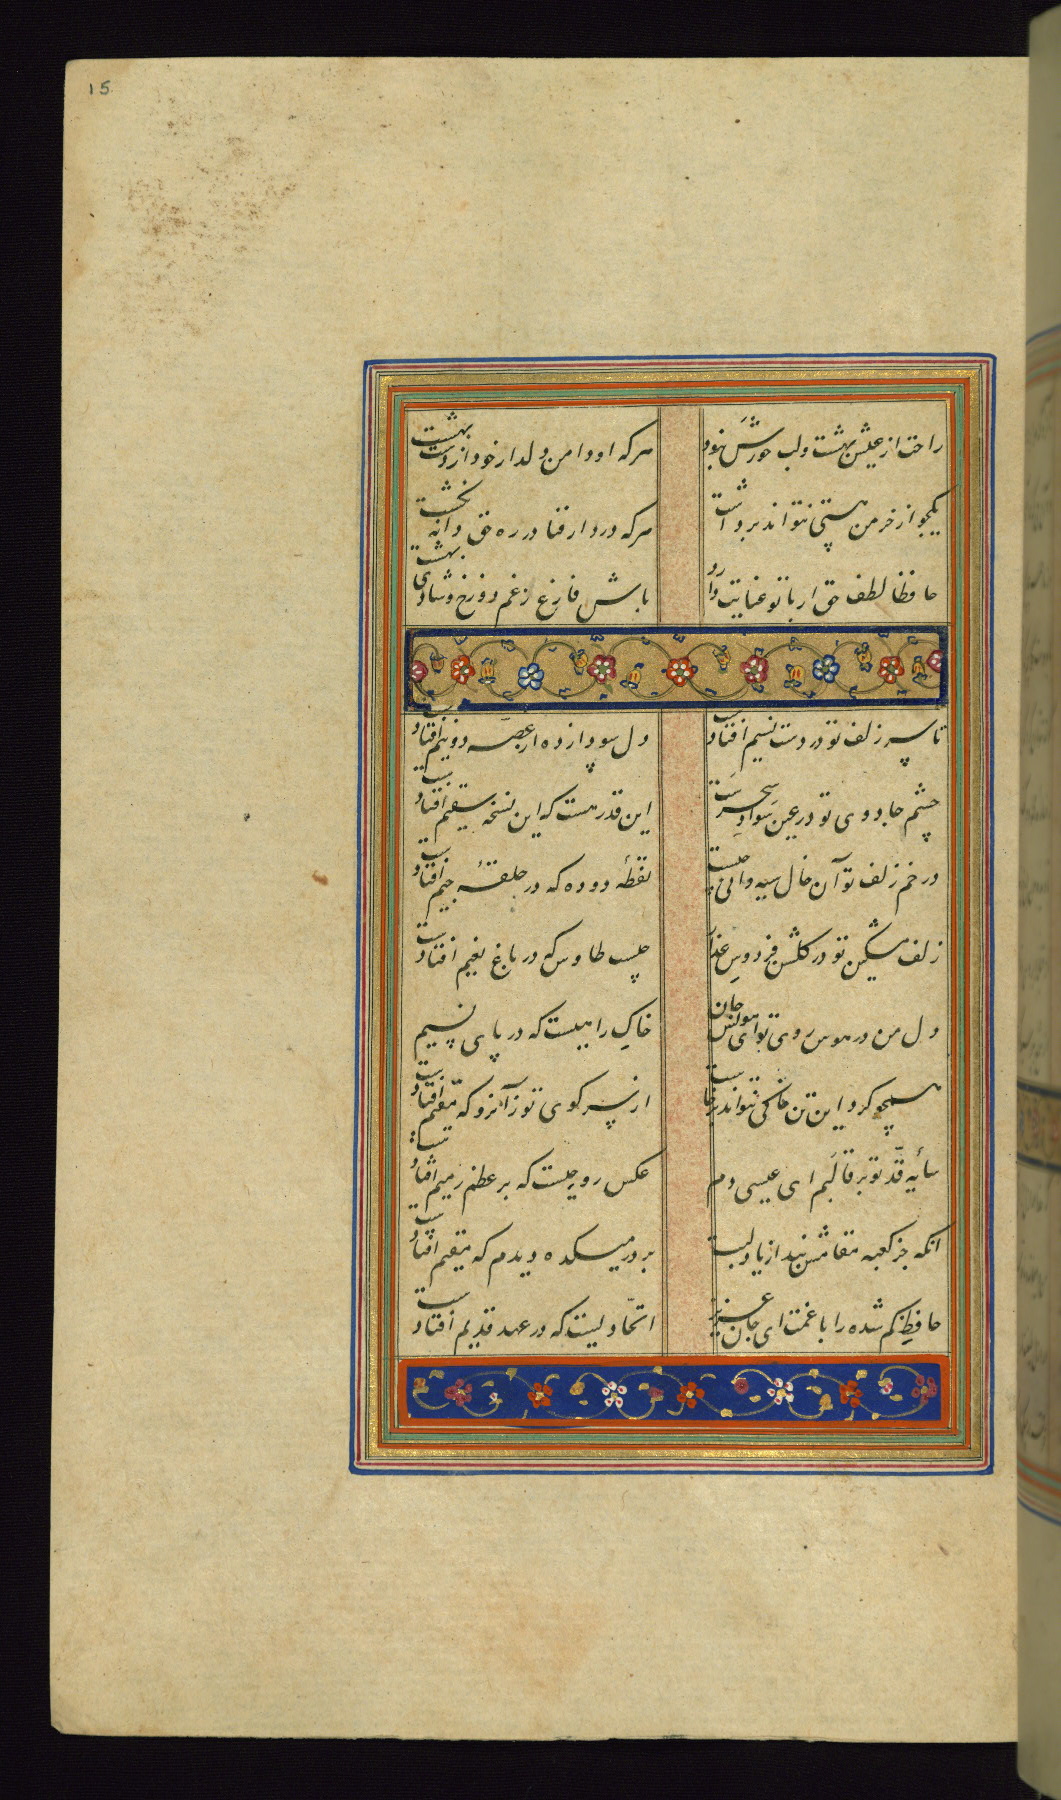 15
راحت از عیش بهشت و لب حورش نبود
هر که او دامن دلدار خود از دست بهشت
یکجو از خرمن هستی نتواند برداشت
هر که در دار فنا در ره حق دانه نکشت
حافظا لطف حق ار با تو عنایت دارد
باش فارغ ز غم دوزخ و شادی بهشت
تا سر زلف تو در دست نسیم افتادست
دل سودازده از غصه دو نیم افتادست
چشم جادوی تو در عین سواد سحرست
این قدر هست که این نسخه سقیم افتادست
در خم زلف تو آن خال سیه دانی چیست
نقطه دوده که در حلقه جیم افتادست
زلف مشکین تو در گلشن فردوس عذار
چیست طاوس که در باغ نعیم افتادست
دل من در هوس روی تو ای مونس جان
خاک راهیست که در پای نسیم
همچو گرد این تن خاکی نتواند برخاست
از سر کوی تو زآنرو که مقیم افتادست
سایه قد تو بر قالبم ای عیسی دم
عکس روحیست که بر عظم رمیم افتادست
آنکه جز کعبه مقامش نبد از یاد لبت
بر در میکده دیدم که مقیم افتادست
حافظ گم شده را با غمت ای جان عزیز
اتحادیست که در عهد قدیم افتادست